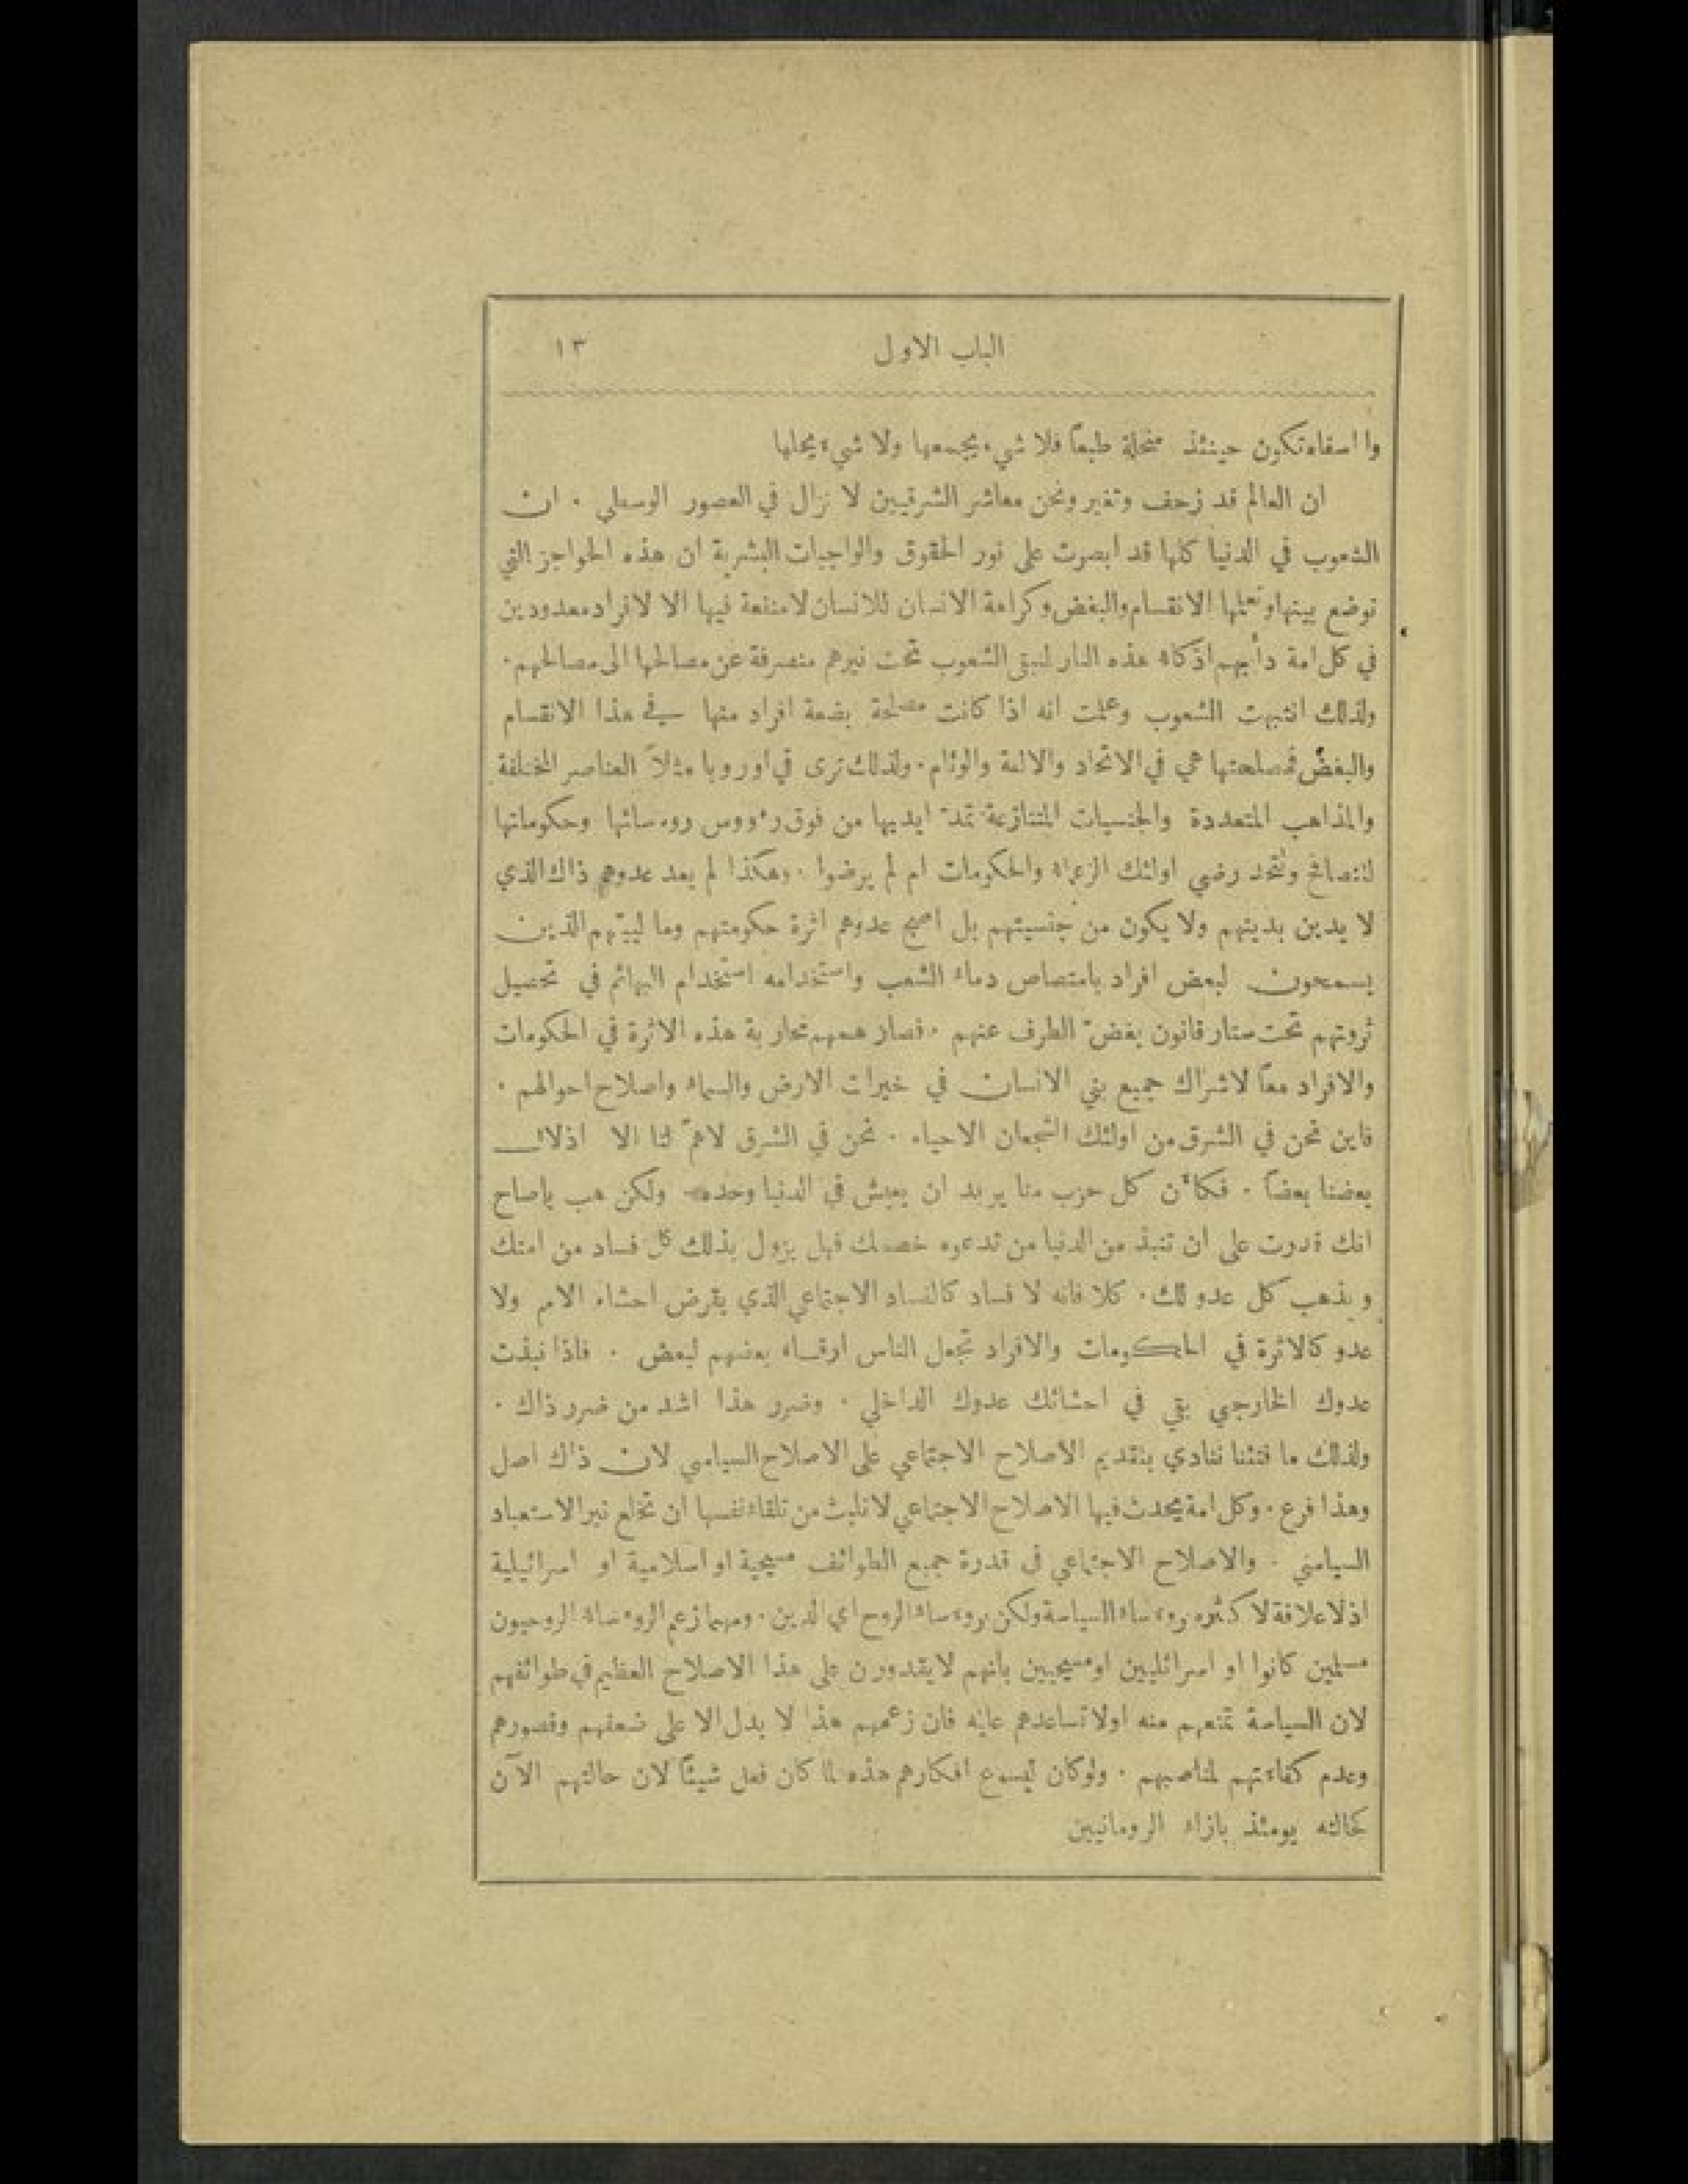 الباب الاول ١٣
وا اسفاه تكون حينئذ منحلة طبعاً فلا شيء يجمعها ولا شيء يحلها
ان العالم قد زحف وتغير ونحن معاشر الشرقيين لا نزال في العصور الوسطى . ان
الشعوب في الدنيا كلها قد ابصرت على نور الحقوق والواجبات البشرية ان هذه الحواجز التي
توضع بينها وتعلمها الانقسام والبغض وكراهة الانسان للانسان لا منفعة فيها الا لافراد معدودين
في كل امة دأبهم اذكاء هذه النار لتبقى الشعوب تحت نيرهم منصرفة عن مصالحها الى مصالحهم .
ولذلك انتبهت الشعوب وعلمت انه اذا كانت مصلحة بضعة افراد منها في هذا الانقسام
والبغض فمصلحتها هي في الاتحاد والالفة والوئام . ولذلك ترى في اوروبا مثلاً العناصر المختلفة
والمذاهب المتعددة والجنسيات المتنازعة تمدّ ايديها من فوق رؤوس روءسائها وحكوماتها
لتتصافح وتتحد رضي اولئك الزعماء والحكومات ام لم يرضوا . وهكذا لم يعد عدوهم ذاك الذي
لا يدين بدينهم ولا يكون من جنسيتهم بل اصبح عدوهم اثرة حكومتهم وماليتهم الذين
يسمحون لبعض افراد بامتصاص دماء الشعب واستخدامه استخدام البهائم في تحصيل
ثروتهم تحت ستار قانون يغضّ الطرف عنهم . فصار همهم محاربة هذه الاثرة في الحكومات
والافراد معاً لاشراك جميع بني الانسان في خيرات الارض والسماء واصلاح احوالهم .
فاين نحن في الشرق من اولئك الشجعان الاحياء . نحن في الشرق لا همّ لنا الا اذلال
بعضنا بعضاً . فكأن كل حزب منا يريد ان يعيش في الدنيا وحده ولكن هب ياصاح
انك قدرت على ان تنبذ من الدنيا من تدعوه خصمك فهل يزول بذلك كل فساد من امتك
ويذهب كل عدو لك . كلا فانه لا فساد كالفساد الاجتماعي الذي يقرض احشاء الامم ولا
عدو كالاثرة في الحكومات والافراد تجعل الناس ارقاء بعضهم لبعض . فاذا نبذت
عدوك الخارجي بقي في احشائك عدوك الداخلي . وضرر هذا اشد من ضرر ذاك .
ولذلك ما فتئنا ننادي بتقديم الاصلاح الاجتماعي على الاصلاح السياسي لان ذاك اصل
وهذا فرع . وكل امة يحدث فيها الاصلاح الاجتماعي لا تلبث من تلقاء نفسها ان تخلع نير الاستعباد
السياسي . والاصلاح الاجتماعي في قدرة جميع الطوائف مسيحية او اسلامية او اسرائيلية
اذ لا علاقة لاكثره بروءساء السياسة ولكن بروءساء الروح اي الدين . ومهما زعم الروءساء الروحيون
مسلمين كانوا او اسرائليين او مسيحيين بانهم لا يقدورن على هذا الاصلاح العظيم في طوائفهم
لان السياسة تمنعهم منه او لا تساعدهم عليه فان زعمهم هذا لا يدل الا على ضعفهم وقصورهم
وعدم كفاءتهم لمناصبهم . ولو كان ليسوع افكارهم هذه لما كان فعل شيئاً لان حالتهم الآن
كحالته يومئذ بازاء الرومانيين